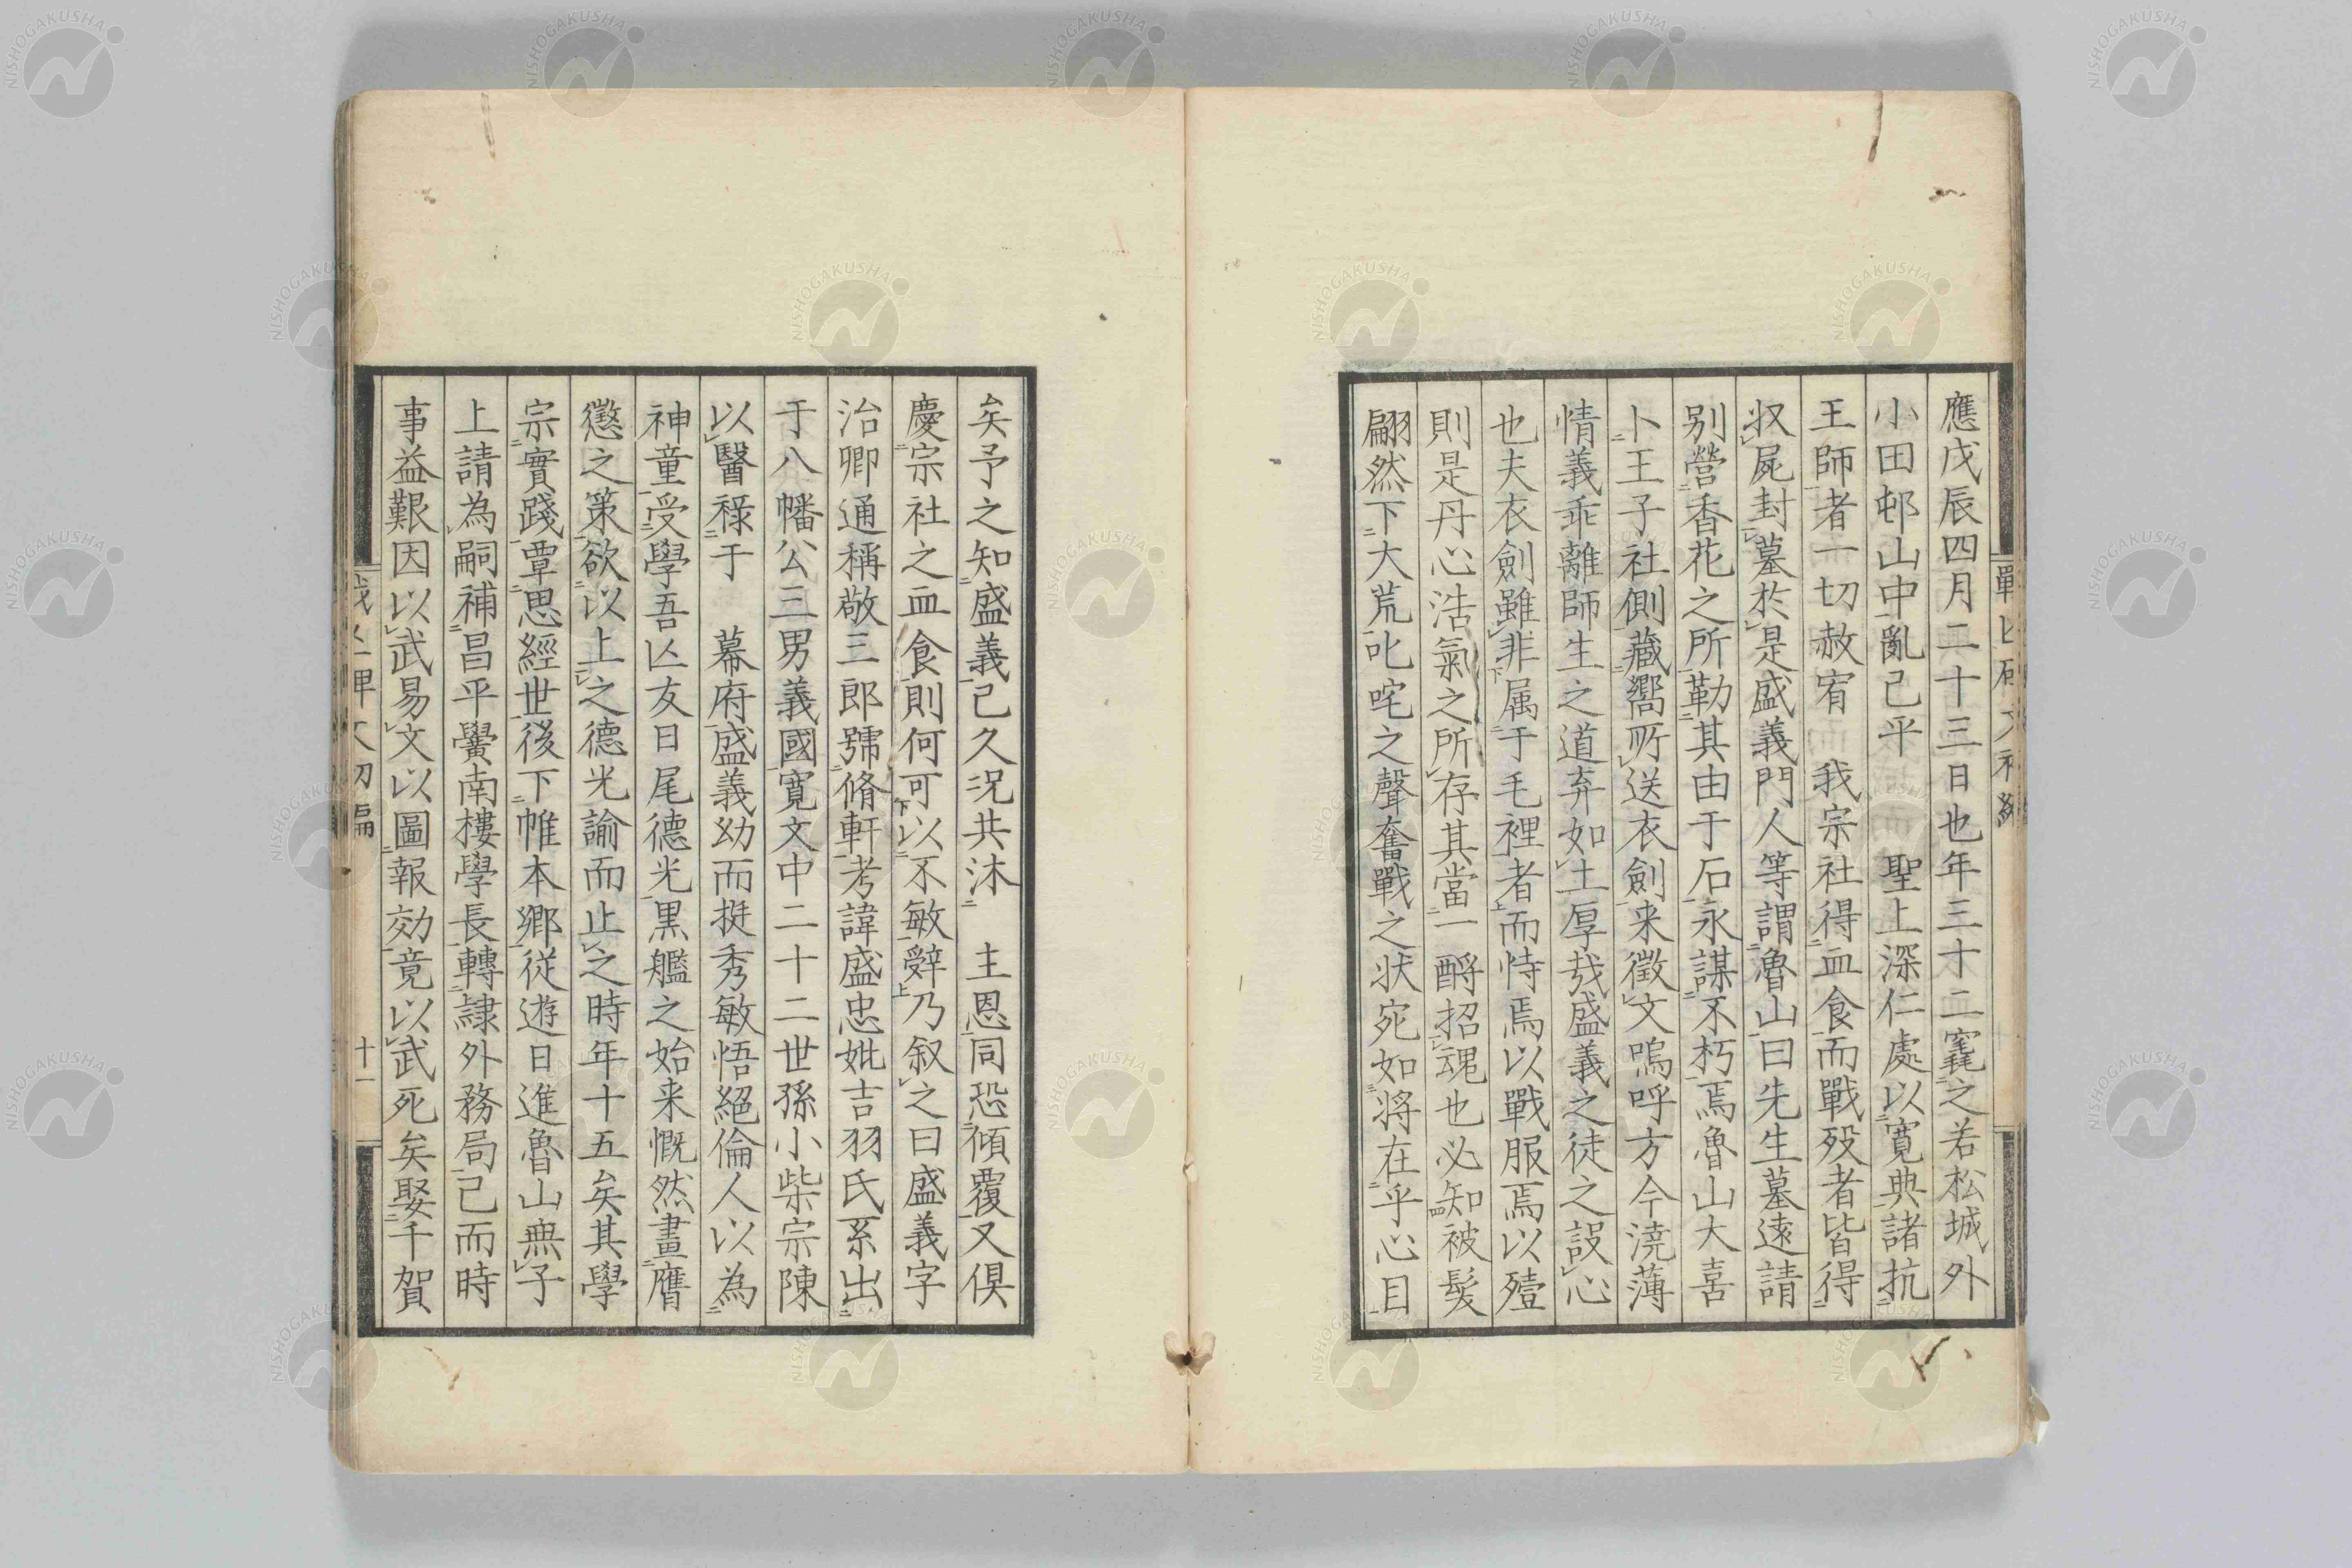 應戊辰四月二十三日也年三十二窆之若松城外
小田邨山中亂已平　聖上深仁處以寬典諸抗
王師者一切赦宥　我宗社得血食而戰歿者皆得
收屍封墓於是盛義門人等謂魯山曰先生墓遠請
別營香花之所勒其由于石永謀不朽焉魯山大喜
卜王子社側藏嚮所送衣劍来徵文嗚呼方今澆薄
情義乖離師生之道弃如土厚哉盛義之徒之設心
也夫衣劍雖非属于毛裡者而恃焉以戰服焉以殪
則是丹心浩氣之所存其當一酹招魂也必知被髮
翩然下大荒叱咤之聲奮戰之状宛如将在乎心目
矣予之知盛義已久況共沐　主恩同恐傾覆又俱
慶宗社之血食則何可以不敏辤乃叙之曰盛義字
治卿通稱敬三郎號脩軒考諱盛忠妣吉羽氏系出
于八幡公三男義國寬文中二十二世孫小柴宗陳
以醫祿于　幕府盛義幼而挺秀敏悟絕倫人以為
神童受學吾亾友日尾德光黒艦之始来慨然畫膺
懲之策欲以上之德光諭而止之時年十五矣其學
宗實踐覃思經世後下帷本鄉從遊日進魯山無子
上請為嗣補昌平黌南樓學長轉隷外務局已而時
事益艱因以武易文以圖報効竟以武死矣娶千賀
十一